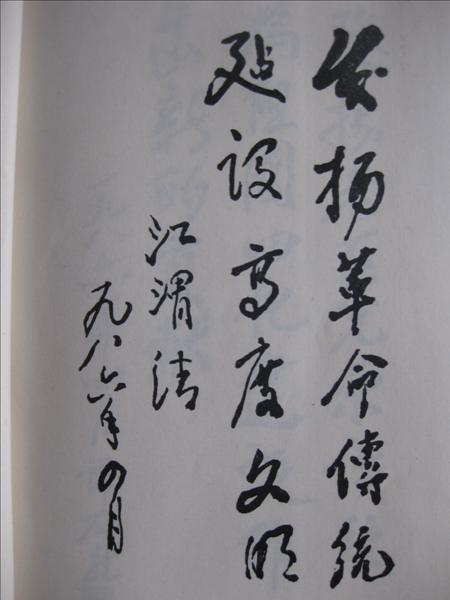 发扬革命傳统
建设高度文明
江渭清
一九八六年四月